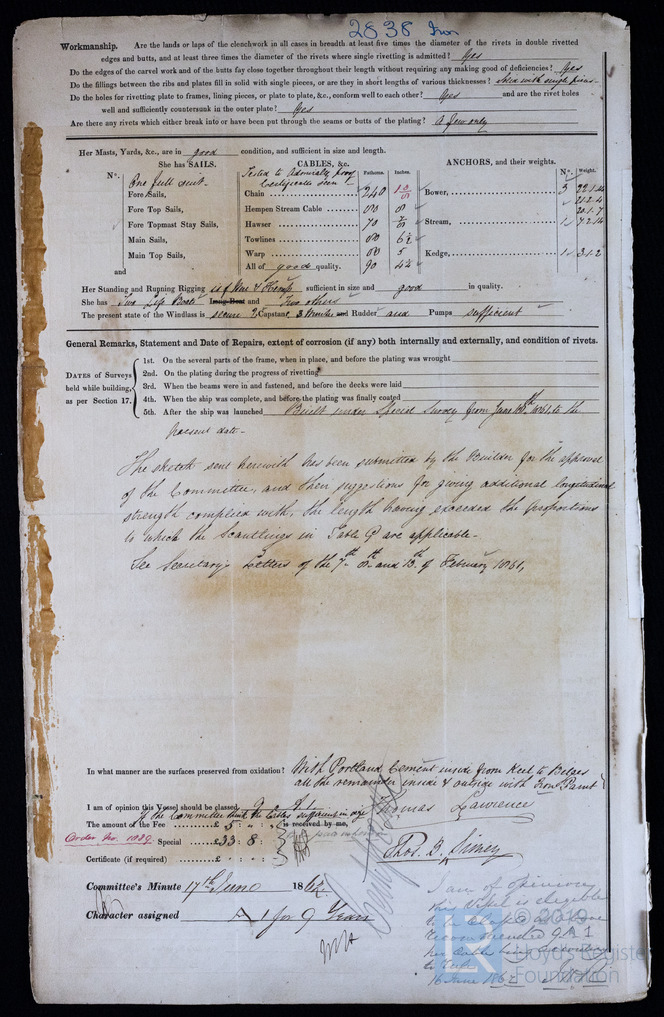 2838 Iron
Workmanship. Are the lands or laps of the clenchwork in all cases in breadth at least five times the diameter of the rivets in double rivetted
edges and butts, and at least three times the diameter of the rivets where single rivetting is admitted? Yes
Do the edges of the carvel work and of the butts fay close together throughout their length without requiring any making good of deficiencies? Yes
Do the fillings between the ribs and plates fill in solid with single pieces, or are they in short lengths of various thicknesses? Solid with single pieces
Do the holes for rivetting plate to frames, lining pieces, or plate to plate, &c., conform well to each other? Yes and are the rivet holes
well and sufficiently countersunk in the outer plate? Yes
Are there any rivets which either break into or have been put through the seams or butts of the plating? A few only
Her Masts, Yards, &c., are in good condition, and sufficient in size and length.
She has SAILS. CABLES, &c. Fathoms. Inches. ANCHORS, and their weights. No. Weight.
No. One full suit Tested to Admiralty proof
Certificates seen
Fore Sails, Chain 240 Bower, 3 22.1.4
Fore Top Sails, Hempen Stream Cable 21.2.4
20.1.7
Fore Topmast Stay Sails, Hawser 70 Stream, 1 7.2.14
Main Sails, Towlines 6½
Main Top Sails, Warp 5 Kedge, 1 3.1.2
and All of good quality. 90 4½
Her Standing and Running Rigging is of Wire & Hemp sufficient in size and good in quality.
She has Two Life Boats Long Boat and Two others
The present state of the Windlass is secure 2 Capstans, 3 Winches and Rudder and Pumps sufficient
General Remarks, Statement and Date of Repairs, extent of corrosion (if any) both internally and externally, and condition of rivets.
DATES of Surveys
held while building,
as per Section 17.
1st. On the several parts of the frame, when in place, and before the plating was wrought
2nd. On the plating during the progress of rivetting
3rd. When the beams were in and fastened, and before the decks were laid
4th. When the ship was complete, and before the plating was finally coated
5th. After the ship was launched Built under Special Survey from June 1861, to the
present date-
The sketch sent herewith has been submitted by the Builder for the approval
of the Committee, and their suggestions for giving additional longitudinal
strength complied with, the length having exceeded the proportions
to which the Scantlings in Table G are applicable-
See Secretary's Letters of the 7th 8th and 13th of February 1861,
In what manner are the surfaces preserved from oxidation? With Portland Cement inside from Keel to Bilges
all the remainder inside & outside with Iron Paint
I am of opinion this Vessel should be classed 9 A 1
if the Committee think the Cables sufficient in size
Thomas Lawrence
The amount of the Fee £ 5 : : is received by me,
Order No. 1089. Special £33 : 8 :
Certificate (if required) £ : :
Thos. B. Simey
Committee's Minute 17th June 1862.
Character assigned A 1 for 9 Years
I am of opinion
this Vessel is eligible
to be Classed as above
recommended 9 A 1
her Cables being according
to Rule
16 June 1862
© 2019
Lloyd's Register
Foundation